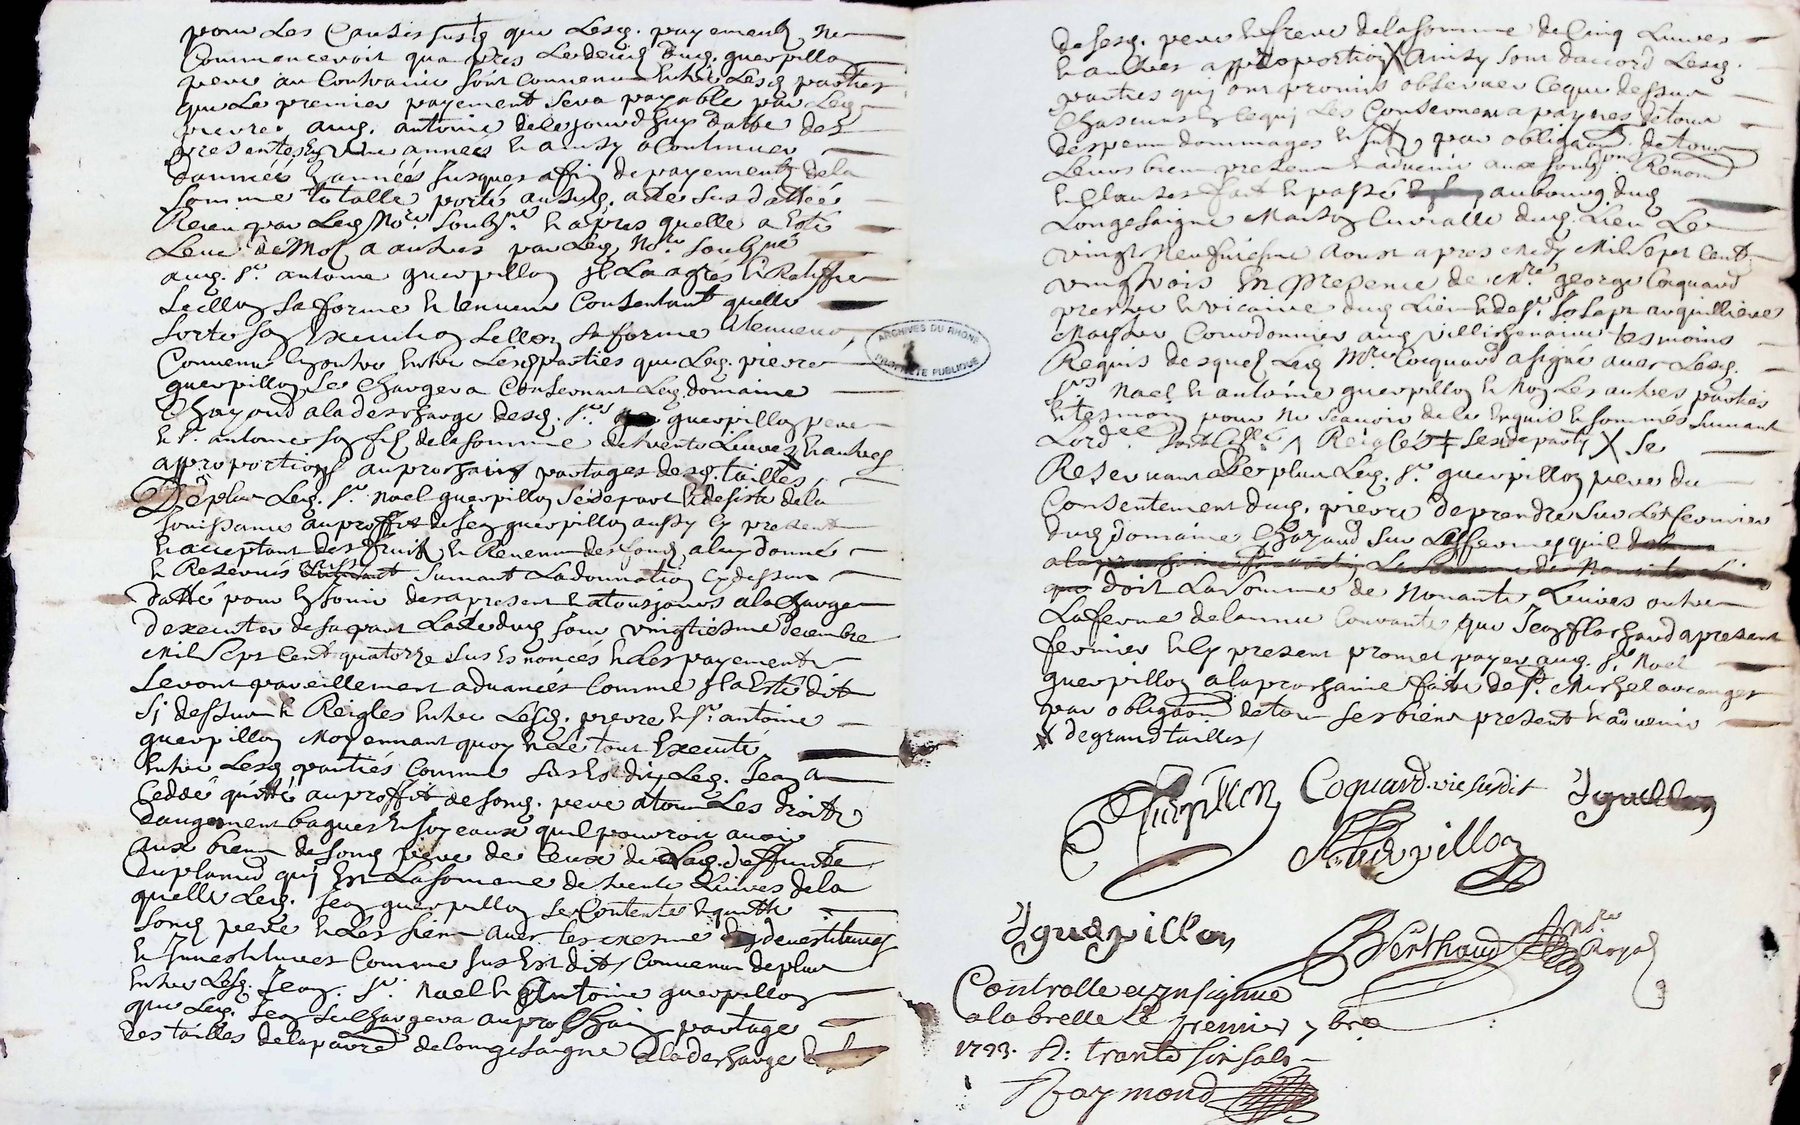 pour Les Causes susd que Lesd. payements ne
Commenceroit qu apres Le deced dud guerpillon
pere au Contraire sont Convenu Entre Lesd parties
que Le premier payement sera payable par Led
pierre aud. antoine de ce jourdhuy datte des
presentes En une annees Et ainsy a Continuer
dannée En année Jusques afin de payement de la
somme totalle porté au susd. acte sus datté
Receu par Led No.re Soubz.né Et apres quelle a Esté
Leue de Mot a autres par Led No.re Soubz.né
aud. Sr. antoine guerpillon Jl La agreé Et Ratiffié
sellon sa forme Et teneur Consentant quelle
sorte son Execution sellon sa forme Et teneur,
ARCHIVES DU RHONE
PROPRIÉTÉ PUBLIQUE
Convenu En outre Entre Lesd parties que Led. pierre
guerpillon se Chargera Concernant Led. domaine
Chazaud a la descharge desd. Srs guerpillon pere
Et Sr. antoine son fils de la somme de trente Livres Et autres
approportion au prochain partages desd. tailles,
De plus Led. Sr. Noel guerpillon se depart Et desiste de la
Jouissance au proffit de Jean guerpillon aussy Cy present
Et acceptant des fruits Et Revenu des fond a luy donné
Et Reservés suivant La donnation Cy dessus
datté pour En Jouir des a present Et a tousjours a la Charge
dexecuter de sa part Lacte dud Jour vingtiesme decembre
Mil sept Cent quatorze sus Enoncés Et Les payements
seront pareillement aduancés Comme Jl a Esté dit
Cy dessus Et Reigles Entre Lesd. pierre Et Sr. antoine
guerpillon Moyennant quoy Et Le tout Executé
Entre Lesd parties Comme sus Est dit Led. Jean a
Ceddé quitté au proffit de sond. pere tous Les droits
daugment bagues Et Joyeaux quil pouvoit avoir
aux biens de sond pere de Ceux de Lad. deffunte
Duplamid qui Est La somme de trente Livres de la
quelle Led. Jean guerpillon se Contente Et quitte
sond pere Et Les siens avec les mesme devestitures
Et Jnvestitures Comme sus Est dit / Convenu de plus
Entre Lesd. Jean Sr. Noel Et antoine guerpillon
que Led. Jean se Chargera au prochain partage
des tailles de la parre de Longesaigne a la descharge
de sesd. pere Et frere de la somme de Cinq Livres
Et autres approportion X ainsy sont daccord Lesd.
parties qui ont promis observer Ce que dessus
Chascuns En Ce qui Les Concernera a paynes de tous
despens dommages Et Jnts par obligaon de tous
Leurs biens present Et aduenir aux soubzmis Renon
Et Clauses fait Et passé au bourg dud
Longesaigne Maison Curialle dud. Lieu Le
vingt Neufviesme aoust apres Midy Mil sept Cent
vingt trois En presence de Mre george Coquard
prestre Et vicaire dud Lieu Et de Sr. Joseph anquillieres
Maistre Courdonnier aud villechenaive tesmoins
Requis desquels Led Mre Coquard a signé avec Lesd.
Srs Noel Et antoine guerpillon Et Non Les autres parties
Et tesmoin pour Ne scavoir de Ce Enquis Et sommés suivant
Lordce Reiglés se departy X Se
Reservant de plus Led. Sr. guerpillon pere du
Consentement dud. pierre de prendre sur Les fermier
dud domaine Chazaud sur Les fermes quil
doit La somme de Nonante Livres outre
La ferme de lannee Courante que Jean flachard a present
fermier Et Cy present promet payer aud. Sr. Noel
guerpillon a la prochaine feste de St. Michel archange
par obligaon de tous ses biens present Et aduenir
X de grand tailles /
Guerpillon Coquard vic susdit
A Guerpillon
J guerpillon
Berthaud Nore Royal
Controlle et Insignue
a la brelle Le premier 7bre
1723. R: trante six sols
Raymond